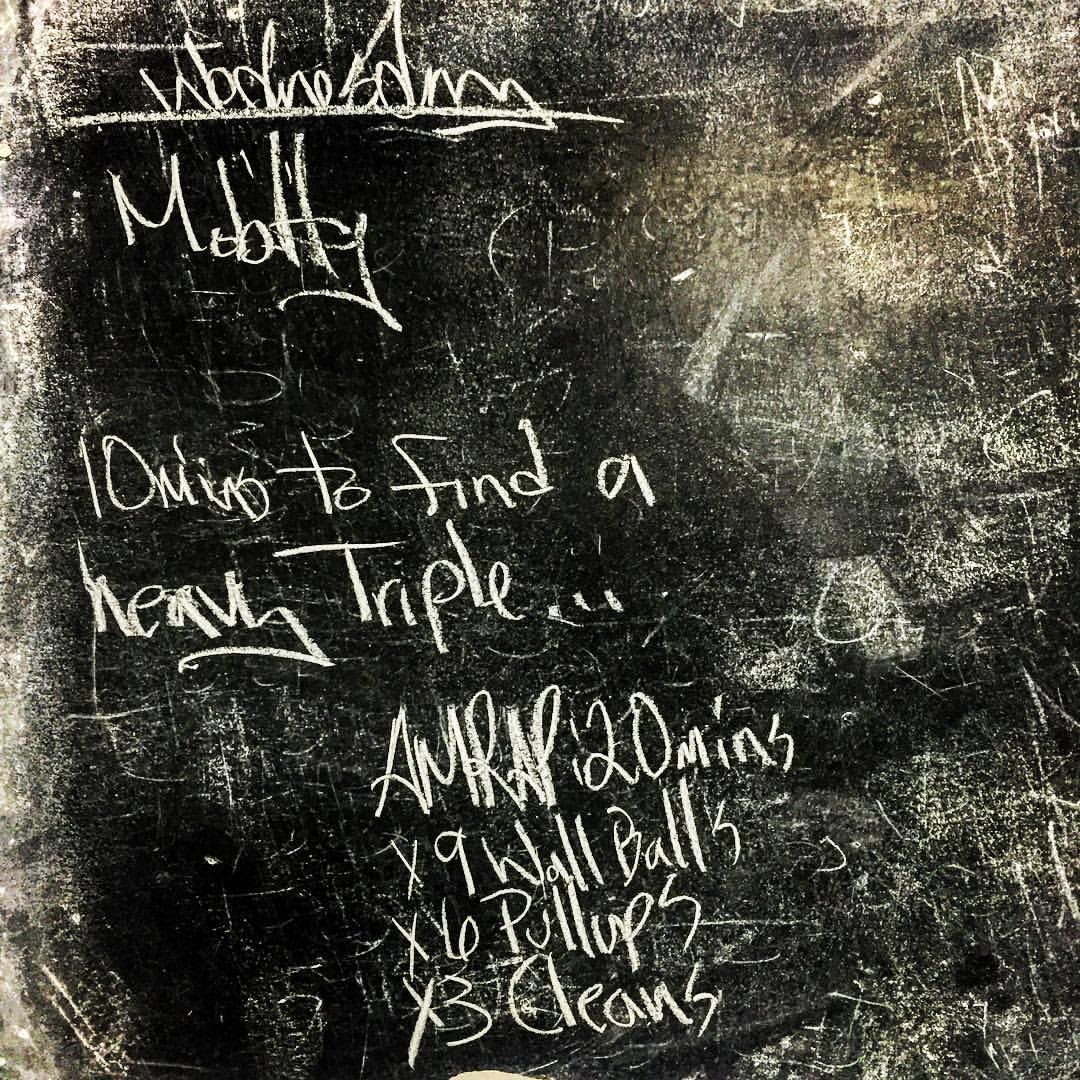 Wednesday
Mobility
10mins to find a
heavy Triple....
AMRAP:20mins
x9 Wall Ball's
x6 Pullups
x3 Cleans